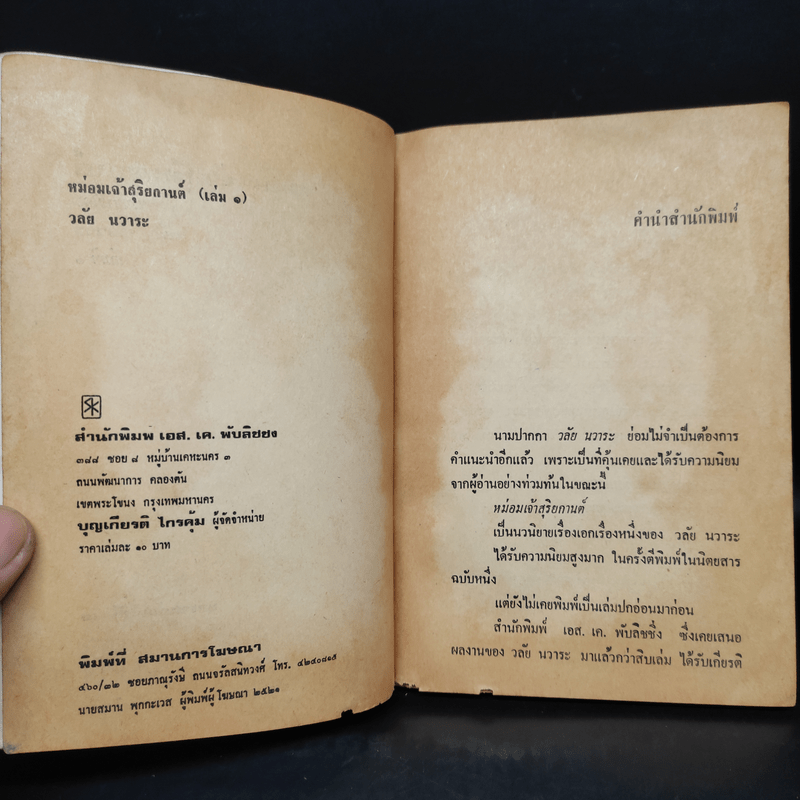 หม่อมเจ้าสุริยกานต์ (เล่ม ๑)
วลัย นวาระ
SK
สำนักพิมพ์ เอส. เค. พับลิชชิง
๓๘๘ ซอย ๘ หมู่บ้านเคหะนคร ๓
ถนนพัฒนาการ คลองตัน
เขตพระโขนง กรุงเทพมหานคร
บุญเกียรติ ไกรคุ้ม ผู้จัดจำหน่าย
ราคาเล่มละ ๑๐ บาท
พิมพ์ที่ สมานการโฆษณา
๔๖๐/๓๒ ซอยภาณุรังษี ถนนจรัลสนิทวงศ์ โทร. ๔๒๔๐๘๑๕
นายสมาน พุกกะเวส ผู้พิมพ์ผู้โฆษณา ๒๕๒๑
คำนำสำนักพิมพ์
นามปากกา วลัย นวาระ ย่อมไม่จำเป็นต้องการ
คำแนะนำอีกแล้ว เพราะเป็นที่คุ้นเคยและได้รับความนิยม
จากผู้อ่านอย่างท่วมท้นในขณะนี้
หม่อมเจ้าสุริยกานต์
เป็นนวนิยายเรื่องเอกเรื่องหนึ่งของ วลัย นวาระ
ได้รับความนิยมสูงมาก ในครั้งตีพิมพ์ในนิตยสาร
ฉบับหนึ่ง
แต่ยังไม่เคยพิมพ์เป็นเล่มปกอ่อนมาก่อน
สำนักพิมพ์ เอส. เค. พับลิชชิ่ง ซึ่งเคยเสนอ
ผลงานของ วลัย นวาระ มาแล้วกว่าสิบเล่ม ได้รับเกียรติ